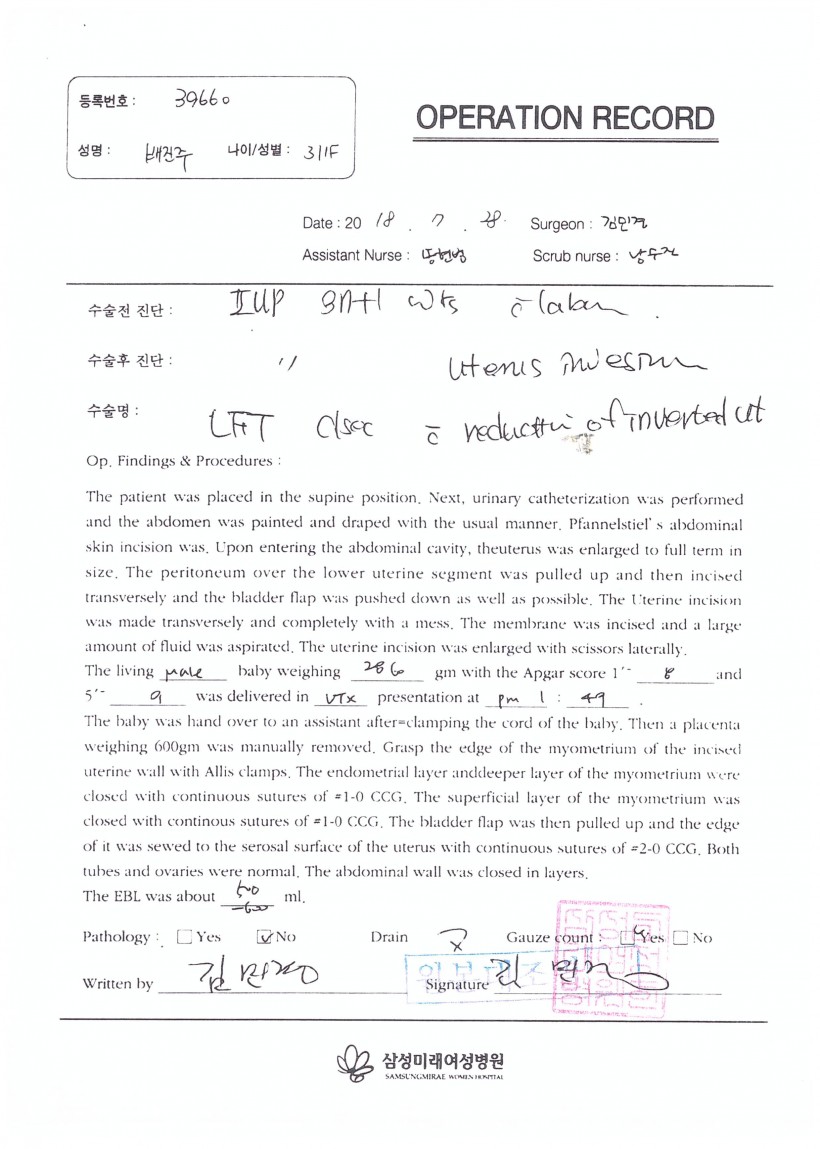 등록번호 : 39660
OPERATION RECORD
성명 : 배진주 나이/성별 : 31/F
Date : 20 18 . 7 . 28. Surgeon :
Assistant Nurse : Scrub nurse :
수술전 진단 : IUP wks c̄ labor .
수술후 진단 : 〃 Uterus
수술명 : c̄ of inverted ut
Op. Findings & Procedures :
The patient was placed in the supine position. Next, urinary catheterization was performed
and the abdomen was painted and draped with the usual manner. Pfannelstiel's abdominal
skin incision was. Upon entering the abdominal cavity, theuterus was enlarged to full term in
size. The peritoneum over the lower uterine segment was pulled up and then incised
transversely and the bladder flap was pushed down as well as possible. The Uterine incision
was made transversely and completely with a mess. The membrane was incised and a large
amount of fluid was aspirated. The uterine incision was enlarged with scissors laterally.
The living male baby weighing gm with the Apgar score 1'- 8 and
5'- 9 was delivered in VTX presentation at pm 1 : 49 .
The baby was hand over to an assistant after=clamping the cord of the baby. Then a placenta
weighing 600gm was manually removed. Grasp the edge of the myometrium of the incised
uterine wall with Allis clamps. The endometrial layer anddeeper layer of the myometrium were
closed with continuous sutures of #1-0 CCG. The superficial layer of the myometrium was
closed with continous sutures of #1-0 CCG. The bladder flap was then pulled up and the edge
of it was sewed to the serosal surface of the uterus with continuous sutures of #2-0 CCG. Both
tubes and ovaries were normal. The abdominal wall was closed in layers.
The EBL was about ml.
Pathology : □ Yes ☑ No Drain Gauze count : ☑ Yes □ No
Written by Signature
삼성미래여성병원
SAMSUNGMIRAE WOMEN HOSPITAL